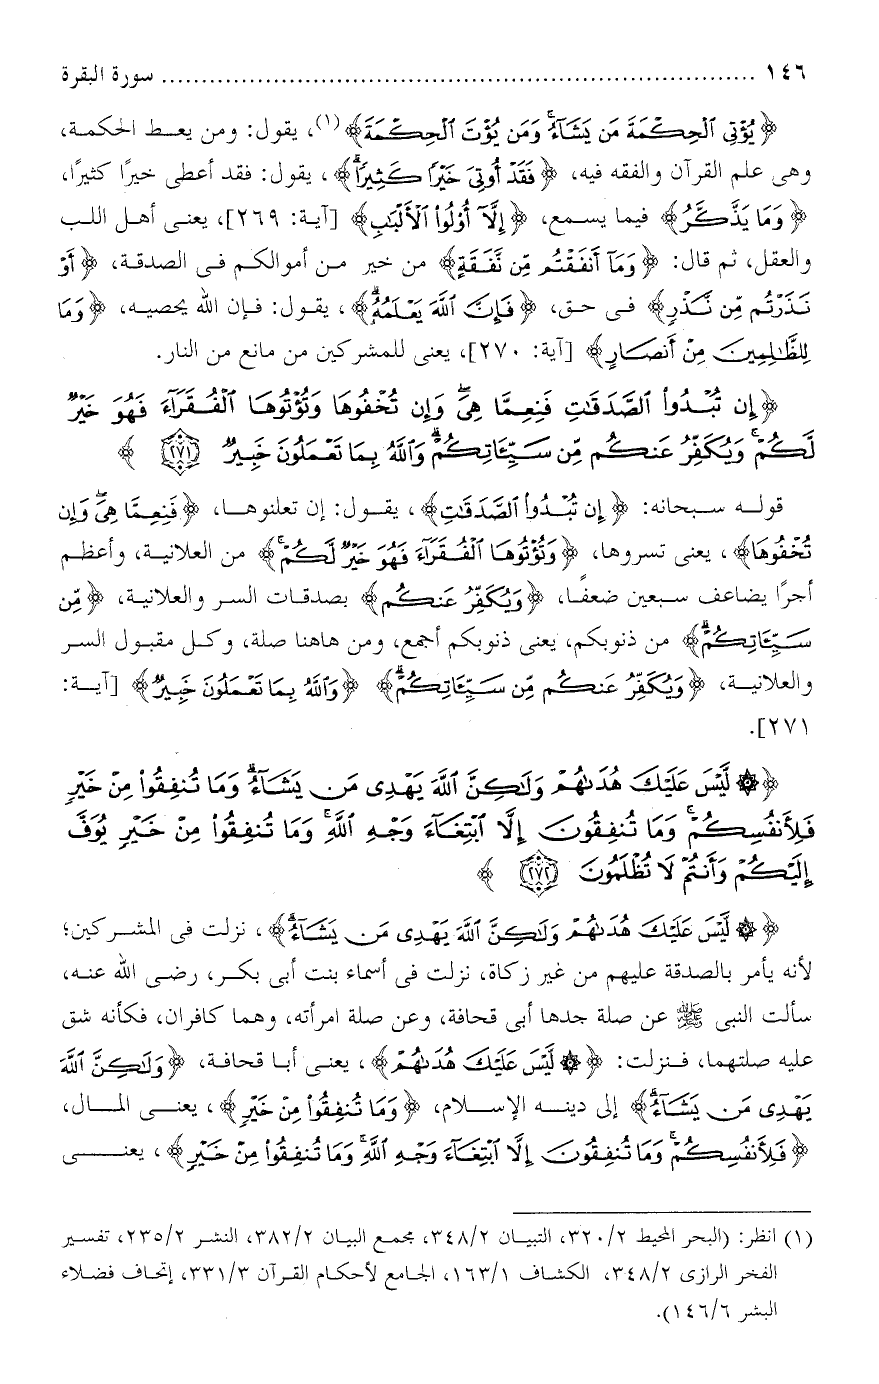 ١٤٦ ........................................ سورة البقرة
﴿يُؤْتِى ٱلْحِكْمَةَ مَن يَشَآءُ ۚ وَمَن يُؤْتَ ٱلْحِكْمَةَ﴾(١)، يقول: ومن يعط الحكمة،
وهى علم القرآن والفقه فيه، ﴿فَقَدْ أُوتِىَ خَيْرًا كَثِيرًا ۗ﴾، يقول: فقد أعطى خيرًا كثيرًا،
﴿وَمَا يَذَّكَّرُ﴾ فيما يسمع، ﴿إِلَّآ أُو۟لُوا۟ ٱلْأَلْبَٰبِ﴾ [آية: ٢٦٩]، يعنى أهل اللب
والعقل، ثم قال: ﴿وَمَآ أَنفَقْتُم مِّن نَّفَقَةٍ﴾ من خير من أموالكم فى الصدقة، ﴿أَوْ
نَذَرْتُم مِّن نَّذْرٍ﴾ فى حق، ﴿فَإِنَّ ٱللَّهَ يَعْلَمُهُۥ ۗ﴾، يقول: فإن الله يحصيه، ﴿وَمَا
لِلظَّٰلِمِينَ مِنْ أَنصَارٍ﴾ [آية: ٢٧٠]، يعنى للمشركين من مانع من النار.
﴿إِن تُبْدُوا۟ ٱلصَّدَقَٰتِ فَنِعِمَّا هِىَ ۖ وَإِن تُخْفُوهَا وَتُؤْتُوهَا ٱلْفُقَرَآءَ فَهُوَ خَيْرٌ
لَّكُمْ ۚ وَيُكَفِّرُ عَنكُم مِّن سَيِّـَٔاتِكُمْ ۗ وَٱللَّهُ بِمَا تَعْمَلُونَ خَبِيرٌ ٢٧١ ﴾
قوله سبحانه: ﴿إِن تُبْدُوا۟ ٱلصَّدَقَٰتِ﴾، يقول: إن تعلنوها، ﴿فَنِعِمَّا هِىَ ۖ وَإِن
تُخْفُوهَا﴾، يعنى تسروها، ﴿وَتُؤْتُوهَا ٱلْفُقَرَآءَ فَهُوَ خَيْرٌ لَّكُمْ ۚ﴾ من العلانية، وأعظم
أجرًا يضاعف سبعين ضعفًا، ﴿وَيُكَفِّرُ عَنكُم﴾ بصدقات السر والعلانية، ﴿مِّن
سَيِّـَٔاتِكُمْ ۗ﴾ من ذنوبكم، يعنى ذنوبكم أجمع، ومن هاهنا صلة، وكل مقبول السر
والعلانية، ﴿وَيُكَفِّرُ عَنكُم مِّن سَيِّـَٔاتِكُمْ ۗ﴾ ﴿وَٱللَّهُ بِمَا تَعْمَلُونَ خَبِيرٌ﴾ [آية:
٢٧١].
﴿۞ لَّيْسَ عَلَيْكَ هُدَىٰهُمْ وَلَٰكِنَّ ٱللَّهَ يَهْدِى مَن يَشَآءُ ۗ وَمَا تُنفِقُوا۟ مِنْ خَيْرٍ
فَلِأَنفُسِكُمْ ۚ وَمَا تُنفِقُونَ إِلَّا ٱبْتِغَآءَ وَجْهِ ٱللَّهِ ۚ وَمَا تُنفِقُوا۟ مِنْ خَيْرٍ يُوَفَّ
إِلَيْكُمْ وَأَنتُمْ لَا تُظْلَمُونَ ٢٧٢ ﴾
﴿۞ لَّيْسَ عَلَيْكَ هُدَىٰهُمْ وَلَٰكِنَّ ٱللَّهَ يَهْدِى مَن يَشَآءُ ۗ﴾، نزلت فى المشركين؛
لأنه يأمر بالصدقة عليهم من غير زكاة، نزلت فى أسماء بنت أبى بكر، رضى الله عنه،
سألت النبى ﷺ عن صلة جدها أبى قحافة، وعن صلة امرأته، وهما كافران، فكأنه شق
عليه صلتهما، فنزلت: ﴿۞ لَّيْسَ عَلَيْكَ هُدَىٰهُمْ﴾، يعنى أبا قحافة، ﴿وَلَٰكِنَّ ٱللَّهَ
يَهْدِى مَن يَشَآءُ ۗ﴾ إلى دينه الإسلام، ﴿وَمَا تُنفِقُوا۟ مِنْ خَيْرٍ﴾، يعنى المال،
﴿فَلِأَنفُسِكُمْ ۚ وَمَا تُنفِقُونَ إِلَّا ٱبْتِغَآءَ وَجْهِ ٱللَّهِ ۚ وَمَا تُنفِقُوا۟ مِنْ خَيْرٍ﴾، يعنى
(١) انظر: (البحر المحيط ٣٢٠/٢، التبيان ٣٤٨/٢، مجمع البيان ٣٨٢/٢، النشر ٢٣٥/٢، تفسير
الفخر الرازى ٣٤٨/٢، الكشاف ١٦٣/١، الجامع لأحكام القرآن ٣٣١/٣، إتحاف فضلاء
البشر ١٤٦/٦).